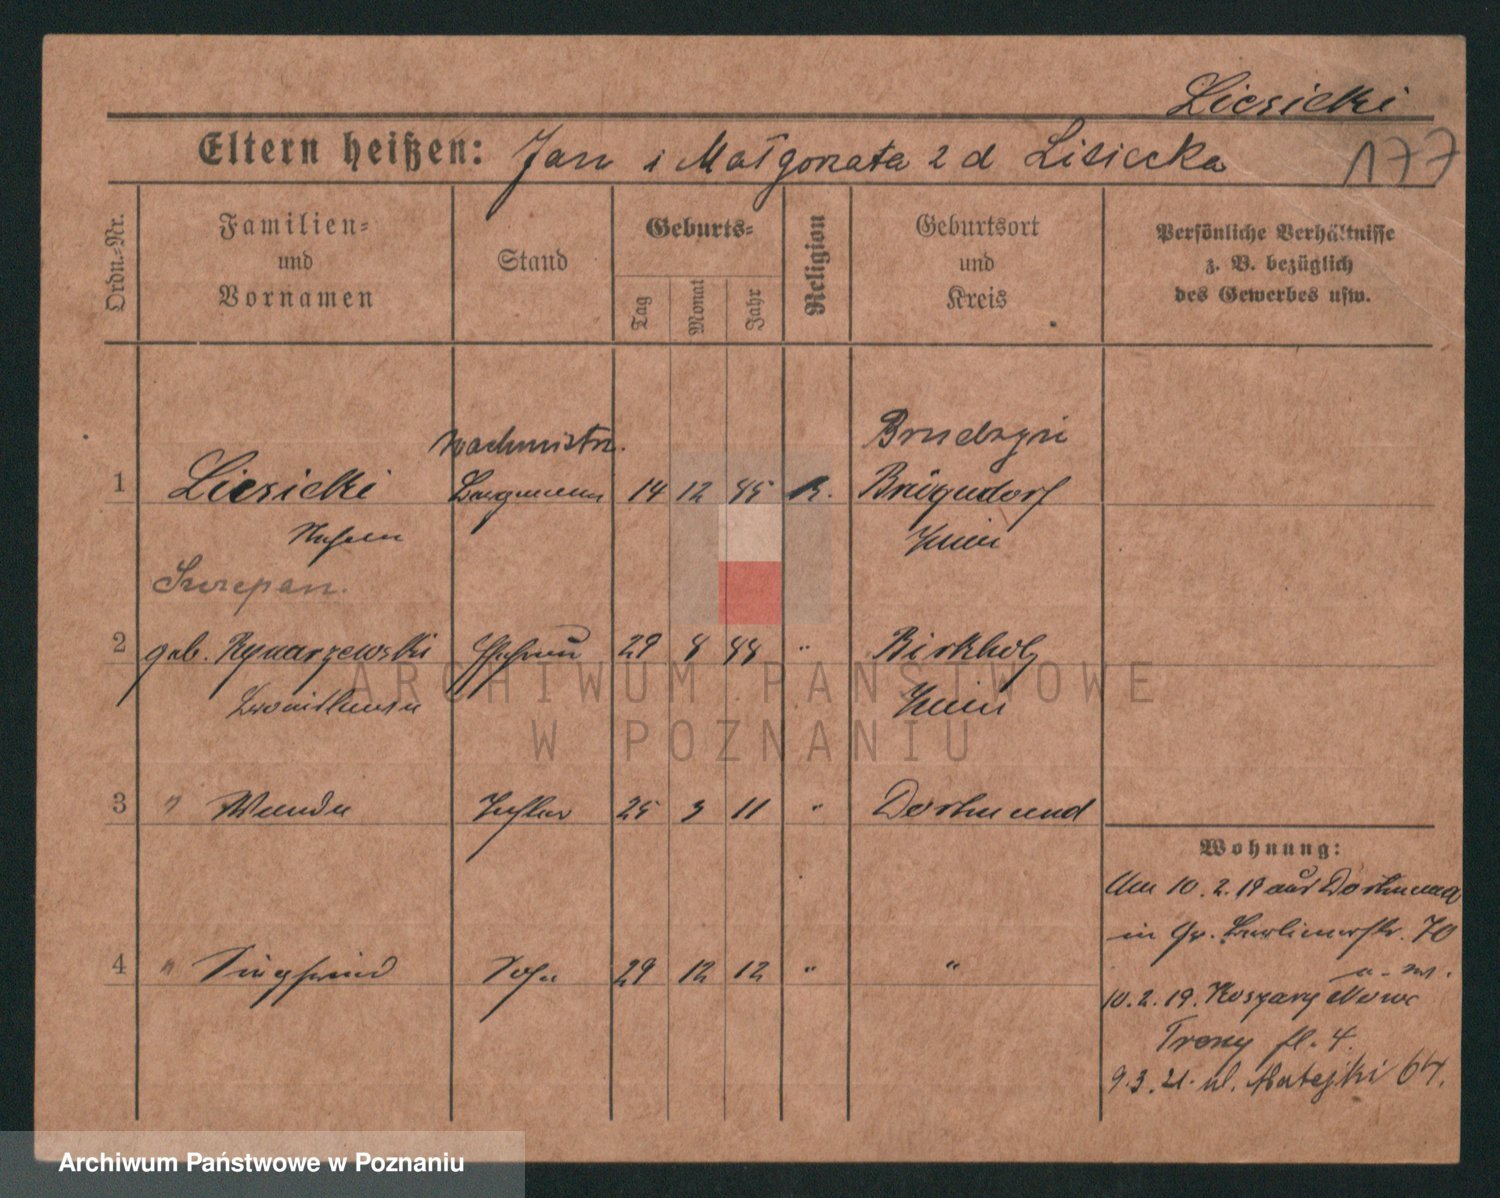 Liesicki
Eltern heißen: Jan i Małgorzata 2 d Lisiecka
177
Ordn.-Nr.
Familien-
und
Vornamen
Stand
Geburts-
Tag
Monat
Jahr
Religion
Geburtsort
und
Kreis
Persönliche Verhältnisse
z. B. bezüglich
des Gewerbes usw.
wachmistrz. Brudzyń
1 Liesicki Bergmann 14 12 85 k. Brügendorf
Stefan Znin
Szczepan.
2 geb. Rynarzewski Ehefrau 29 8 88 " Birkholz
Znin
3 " Wanda Tochter 25 3 11 " Dortmund
Wohnung:
Am 10. 2. 19 aus Dortmund
in Gr. Berlinerstr. 70
4 " Siegfried Sohn 29 12 12 " "
10. 2. 19. Koszary Nowe
Treny fl. 4.
9. 3. 21. ul. Matejki 64.
ARCHIWUM PAŃSTWOWE
W POZNANIU
Archiwum Państwowe w Poznaniu